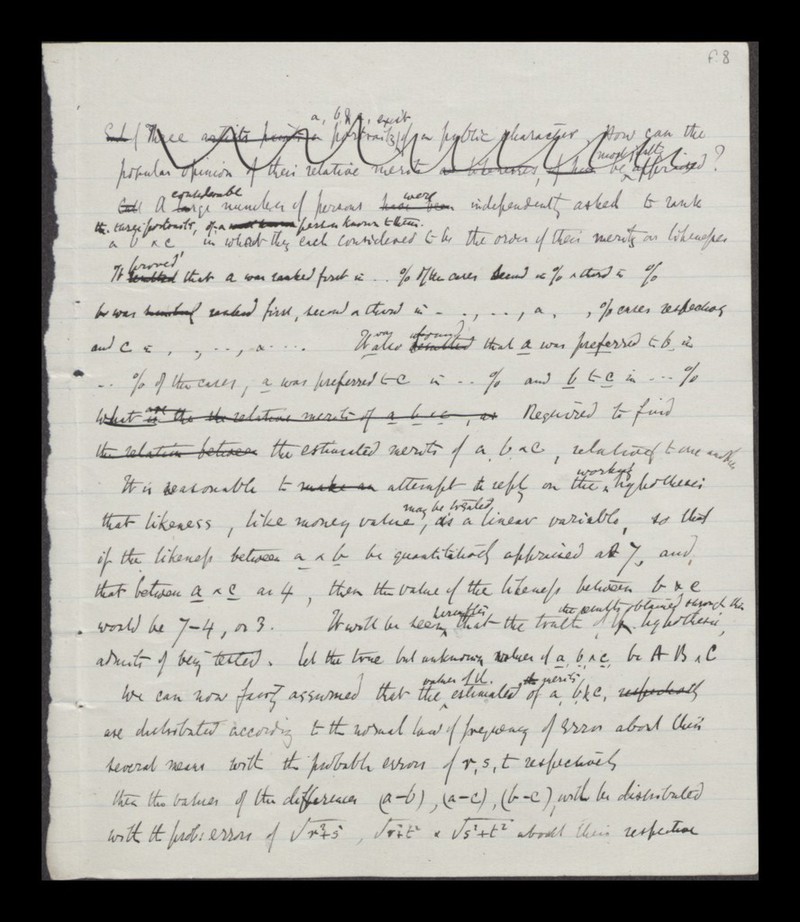 f. 8
a, b & c, exist
Three artists portraits of a public character. How can the
most justly
popular opinion of their relative merits be appraised?
considerable were
A large number of persons have been independently asked to rank
the three portraits, of a person known to them.
a b & c in what they each considered to be the order of their merits as likenesses
proved
It resulted that a was ranked first in .. % of the cases second in % & third in %
b was ranked first, second & third in - . , - - , & . , % cases respectively
was found
and c in , . , - - , & . . . . It also resulted that a was preferred to b in
.. % of the cases, a was preferred to c in .. % and b to c in ... %
are
what is the relative merits of a b & c, Required to find
the relation between the estimated merits of a, b, & c, relatively to one another
working
It is reasonable to make an attempt to reply on the hypothesis
may be treated
that likeness, like money value, as a linear variable, so that
if the likeness between a & b be quantitatively appraised at 7, and
that between a & c as 4, then the value of the likeness between b & c
hereafter the results obtained through this
would be 7-4, or 3. It will be seen that the truth of hypothesis,
admits of being tested. Let the true but unknown values of a, b, & c, be A B & C
values of the merits
We can now fairly assumed that the estimated of a, b & c, respectively
are distributed according to the normal law of frequency of Error about their
several means with the probable errors of r, s, t respectively
then the values of the differences (a-b), (a-c), (b-c), will be distributed
with the prob: errors of √r²+s², √r²+t² & √s²+t² about their respective